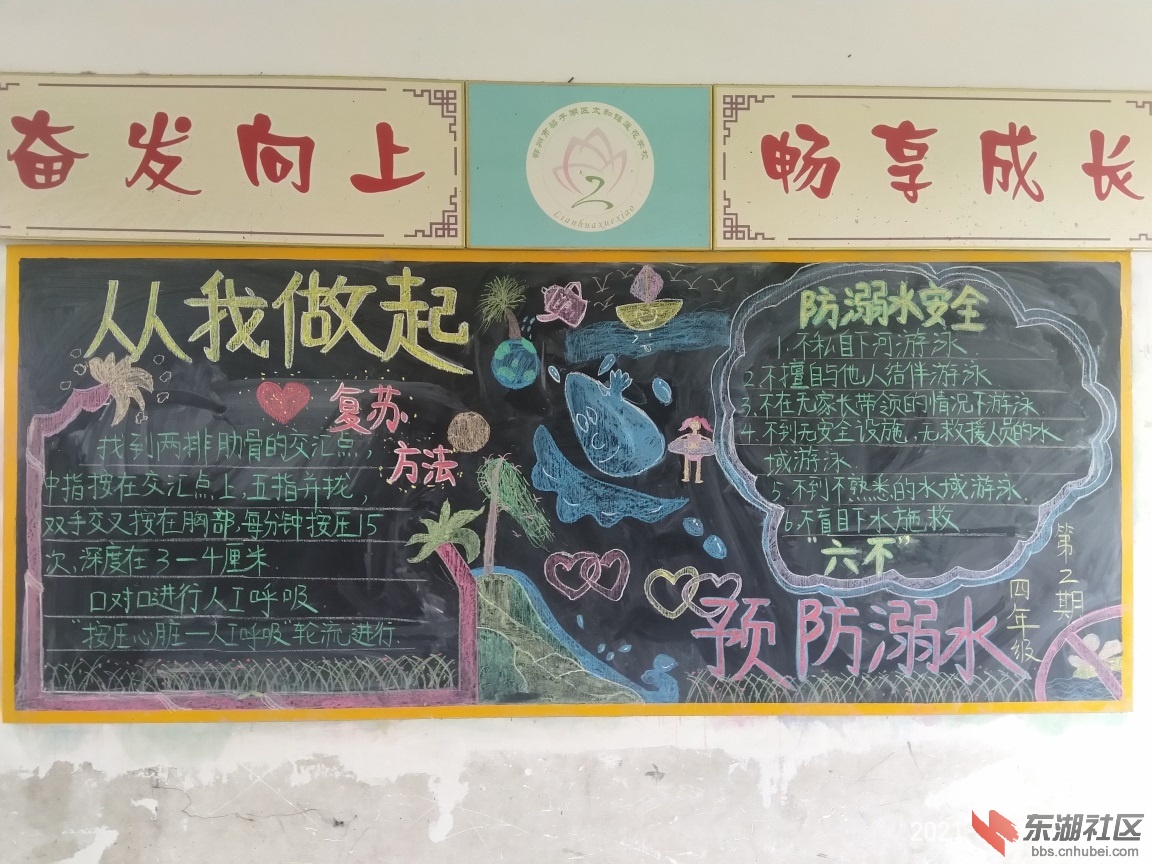 奋发向上
畅享成长
Lianhuaxuexiao
从我做起
复苏
方法
找到两排肋骨的交汇点,
中指按在交汇点上,五指并拢,
双手交叉按在胸部,每分钟按压15
次,深度在3—4厘米.
口对口进行人工呼吸.
"按压心脏—人工呼吸"轮流进行.
防溺水安全
1.不私自下河游泳.
2.不擅自与他人结伴游泳
3.不在无家长带领的情况下游泳
4.不到无安全设施、无救援人员的水
域游泳.
5.不到不熟悉的水域游泳.
6.不盲目下水施救.
"六不"
预防溺水
第2期
四年级
2021
东湖社区
bbs.cnhubei.com